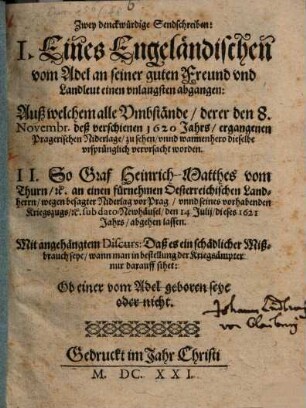 Zwey denckwürdige Sendschreiben:
I. Eines Engeländischen
vom Adel an seiner guten Freund vnd
Landleut einen vnlangsten abgangen:
Auß welchem alle Vmbstände / derer den 8.
Novembr. deß verschienen 1620 Jahrs / ergangenen
Pragerischen Niderlage / zu sehen / vnnd wannenhero dieselbe
vrsprünglich vervrsacht worden.
II. So Graf Heinrich-Matthes vom
Thurn / ꝛc. an einen fürnehmen Oesterreichischen Land-
herrn / wegen besagter Niderlag vor Prag / vnnd seines vorhabenden
Kriegszugs / ꝛc. sub dato Newhäusel / den 14 Julij / dieses 1621
Jahrs / abgehen lassen.
Mit angehängtem Discurs: Daß es ein schädlicher Miß-
brauch seye / wann man in bestellung der Kriegsämpter
nur darauff sihet:
Ob einer vom Adel geboren seye
oder nicht.
Johann
von
Gedruckt im Jahr Christi
M. DC. XXI.